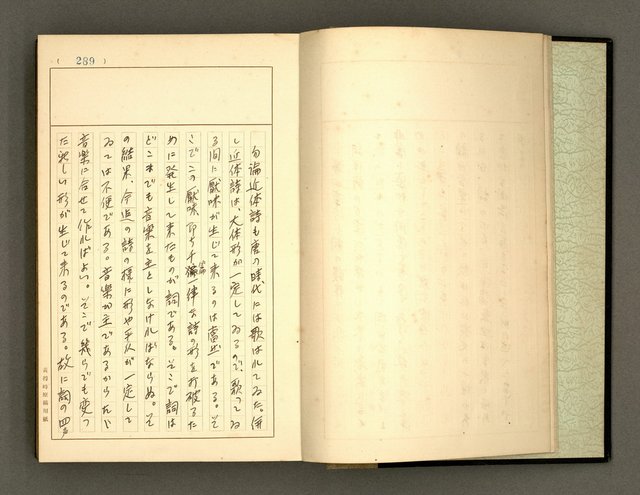 ( 289 )
勿論近体詩も唐の時代には歌はれてゐた。併
し近体詩は、大体形が一定してゐるので、歌つてゐ
る間に厭味が生じて来るのは当然である。そ
こでこの厭味、即ち千篇一律な詩の形を打破るた
めに発生して来たものが詞である。そこで詞は
どこまでも音楽を主としなければならぬ。そ
の結果、今迄の詩の様に形や平仄が一定して
ゐては不便である。音楽が主であるからたゞ
音楽に合せて作ればよい。そこで幾らでも変つ
た新しい形が生じて来るのである。故に詞の四声
黃得時原稿用紙